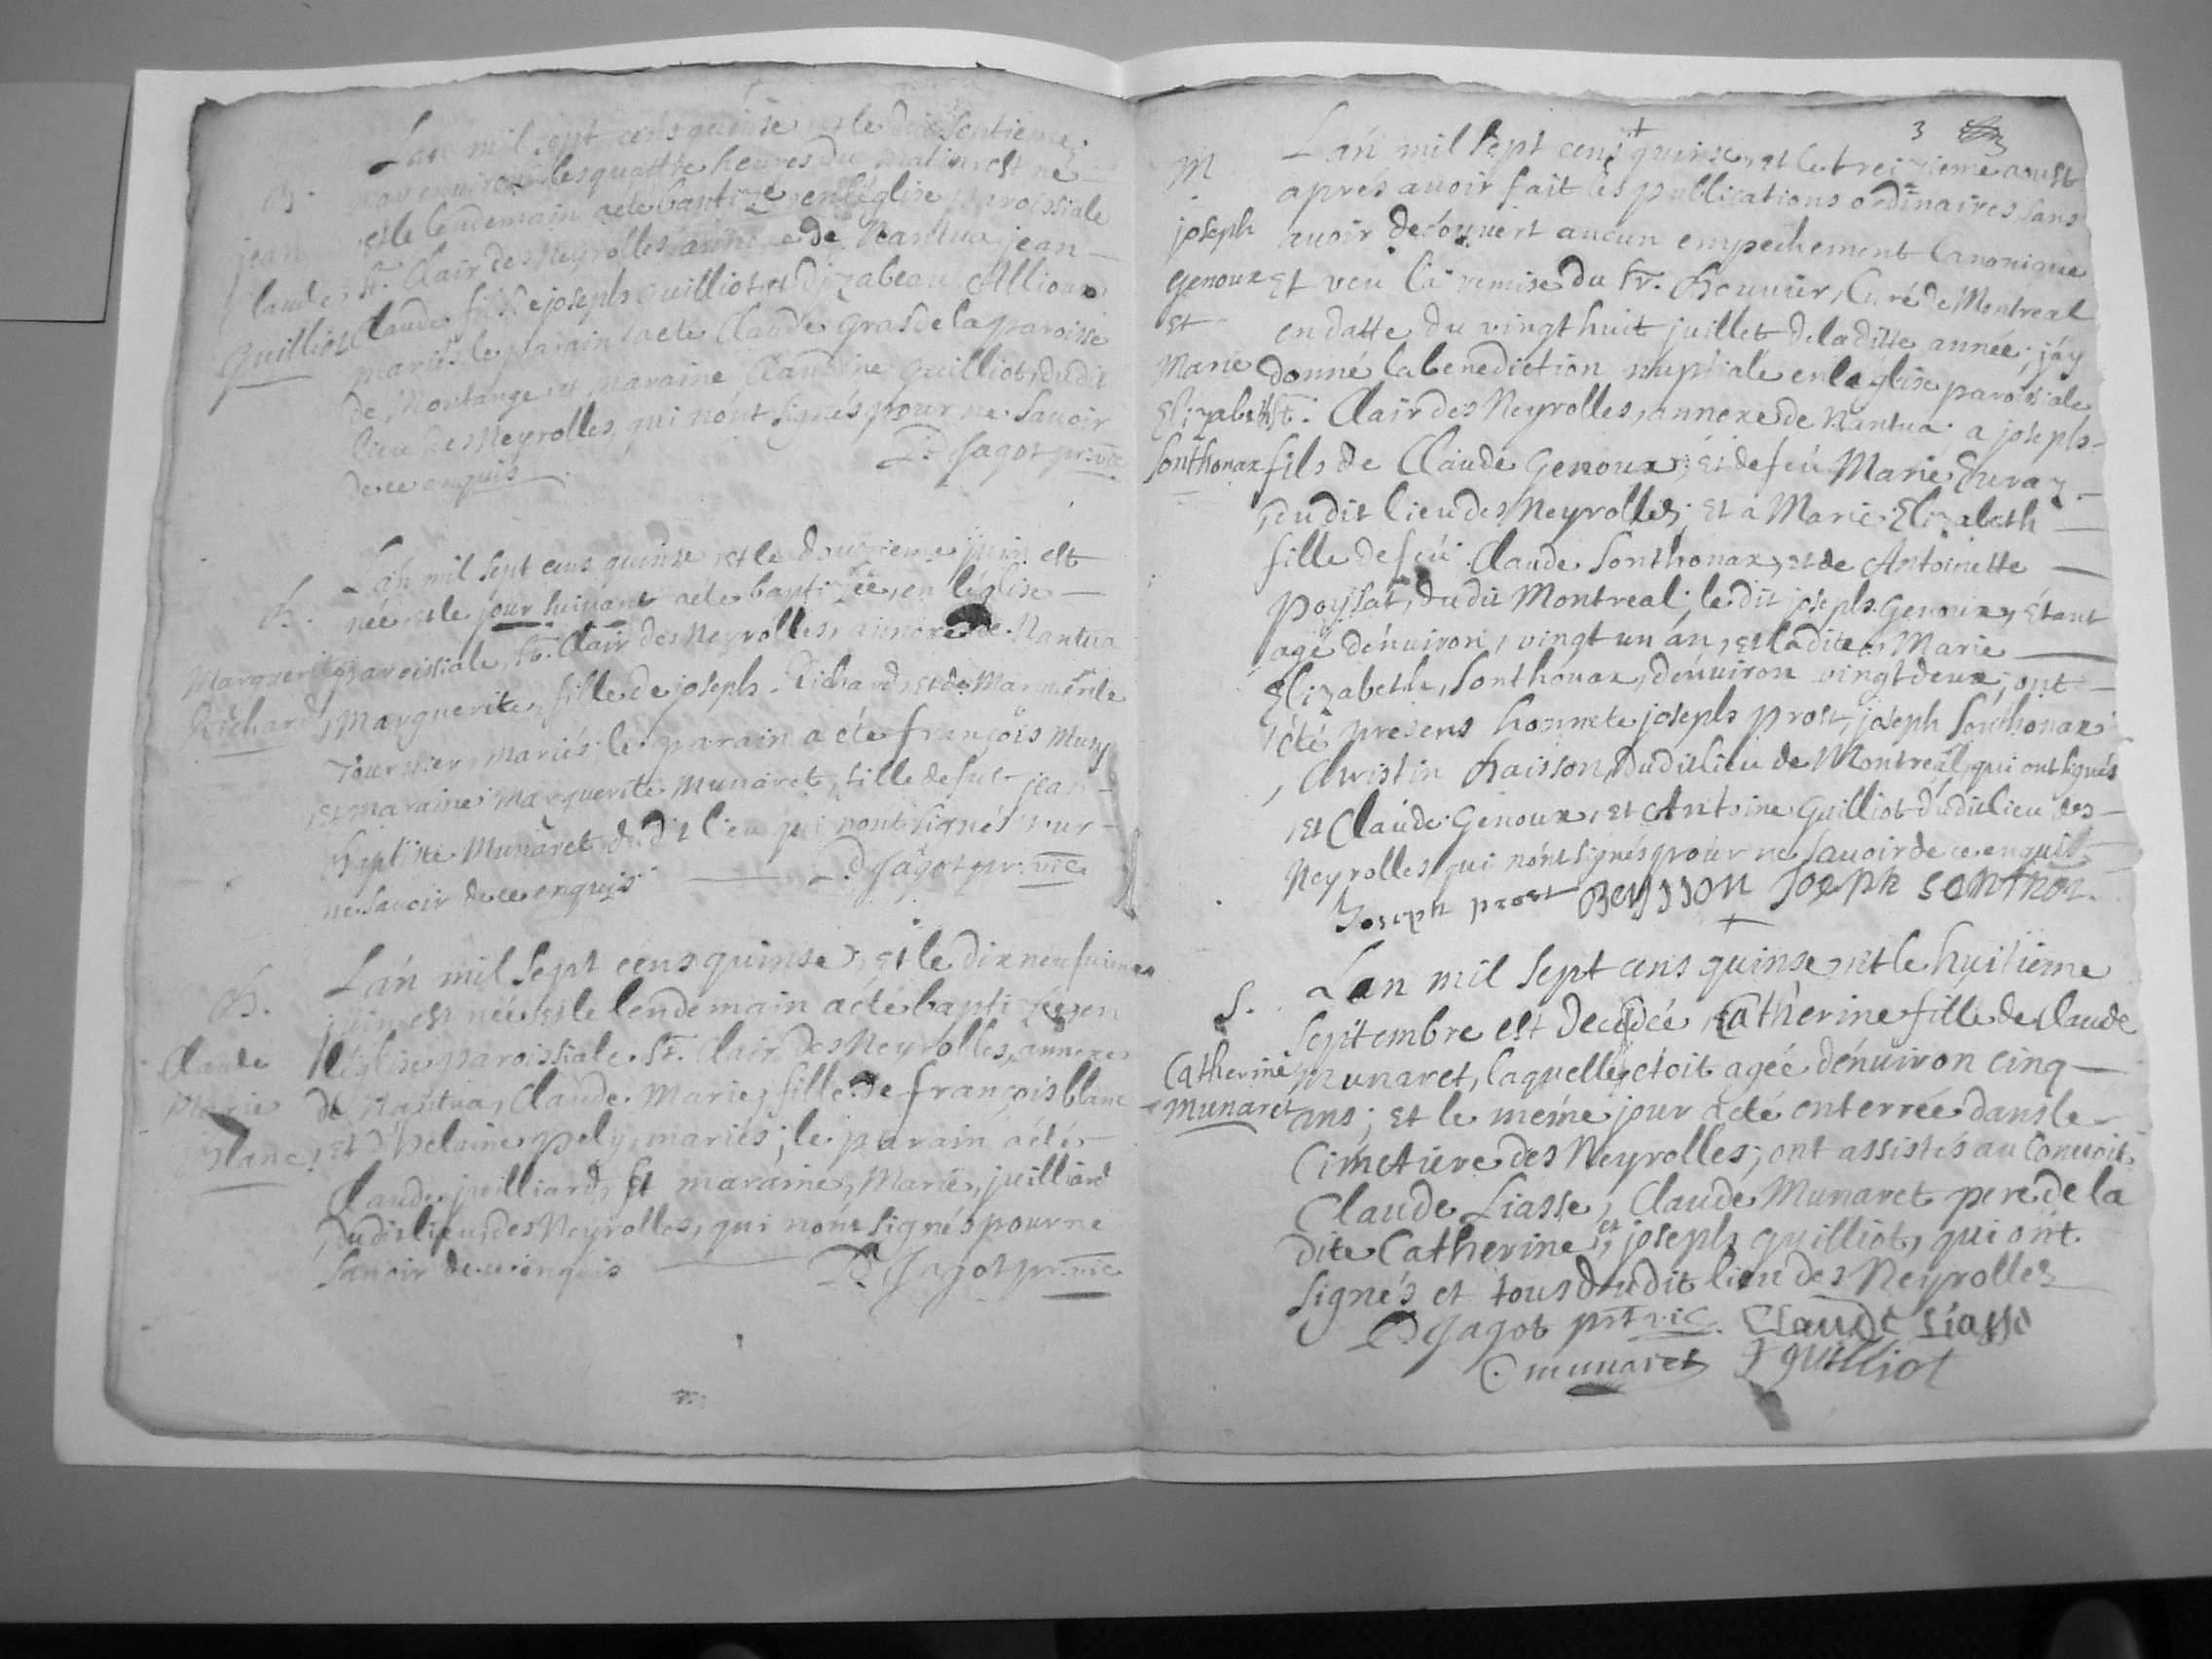 Lan mil sept cens quinse et le dix septieme
may enuiron les quattre heures du matin est né
et le lendemain a eté baptizé en l'église paroissiale
St. Clair des Neyrolles annexe de Nantua jean
Claude fils de joseph guilliot et d'izabeau Allioud
mariés le parain a eté Claude gras de la paroisse
de Montange et maraine Claudine guilliot dudit
lieu des Neyrolles qui n'ont signés pour ne sauoir
de ce enquis
D. Jagot pr. vic
B.
jean
Claude
guilliot
L'an mil sept cens quinse et le douzieme juin est
née et le jour suiuant a eté baptizée, en l'église
paroissiale, St. Clair des Neyrolles, annexe de Nantua
Marguerite, fille de joseph Richard, et de Marguerite
Tournier, mariés; le parain a eté françois Muny
et maraine Marguerite Munaret, fille de feu jean
Baptiste Munaret dudit lieu qui n'ont signés pour
ne sauoir de ce enquis D. Jagot pr. vic
B.
Marguerite
Richard
L'an mil sept cens quinse, et le dix neufuieme
juin est née et le lendemain a eté baptizée en
l'église paroissiale St. Clair des Neyrolles, annexe
de Nantua, Claude Marie, fille de françois blanc
et d'helaine pely, mariés; le parain a eté
Claude juilliard, et maraine, Marie, juilliard
dudit lieu des Neyrolles, qui n'ont signés pour ne
sauoir de ce enquis D. Jagot pr. vic
B.
Claude
Marie
blanc
3
L'an mil sept cens quinse, et le treizieme aoust
aprés auoir fait les publications ordinaires, sans
auoir decouuert aucun empechement Canonique
Et veu la remise du Sr. Bouuier, Curé de Montreal
en datte du vingt huit juillet de laditte année; j'ay
donné la benediction nuptiale en l'eglise paroissiale
St. Clair des Neyrolles, annexe de Nantua a joseph
fils de Claude Genoux; et de feu Marie
dudit lieu des Neyrolles; Et a Marie Elizabeth
fille de feu Claude Sonthonax, et de Antoinette
poysat, dudit Montreal; le dit joseph Genoux, étant
agé d'enuiron, vingt un an, et ladite Marie
Elizabeth, Sonthonax, d'enuiron vingt deux; ont
été presens honnete joseph prost, joseph Sonthonax
, Christin Baisson, dudit lieu de Montreal, qui ont signés
, et Claude Genoux, et Antoine Guilliot dudit lieu des
Neyrolles qui n'ont signés pour ne sauoir de ce enquis
Joseph prost Beysson Joseph sonthon.
M
joseph
genoux
et
Marie
Elizabeth
Sonthonax
Lan mil sept cens quinse, et le huitieme
septembre est decedée, Catherine fille de Claude
Munaret, laquelle etoit agée d'enuiron cinq
ans; et le meme jour a eté enterrée dans le
Cimetiere des Neyrolles; ont assistés au Conuoit
Claude Liasse, Claude Munaret pere de la
dite Catherine, et joseph guilliot, qui ont
signés et tous dudit lieu des Neyrolles
D. Jagot prt vic. Claude Liasse
C. munaret J guilliot
S.
Catherine
Munaret